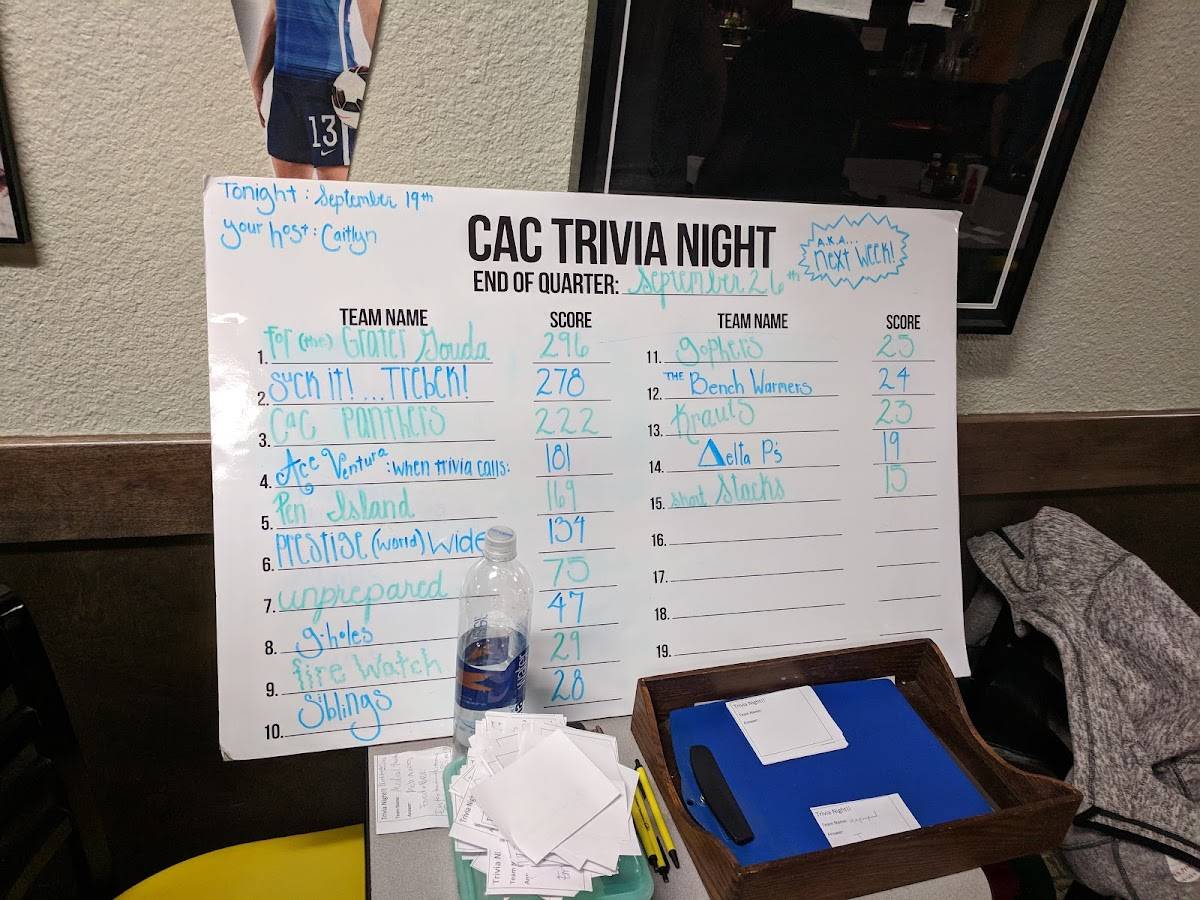 13
Tonight: September 19th
Your host: Caitlyn
CAC TRIVIA NIGHT
A.K.A...
next week!
END OF QUARTER: September 26th
TEAM NAME SCORE
1. For (the) Grater Gouda 296
2. Suck it!...Trebek! 278
3. CAC Panthers 222
4. Ace Ventura: when trivia calls: 181
5. Pen Island 169
6. Prestige (World) Wide 134
7. unprepared 75
8. g-holes 47
9. fire watch 29
10. Siblings 28
TEAM NAME SCORE
11. gophers 25
12. THE Bench Warmers 24
13. Krauts 23
14. Delta P's 19
15. Short Stacks 15
16.
17.
18.
19.
Trivia Night!
Team Name:
Answer:
Trivia Night!
Team Name:
Answer:
Trivia Night!
Team Name:
Answer: